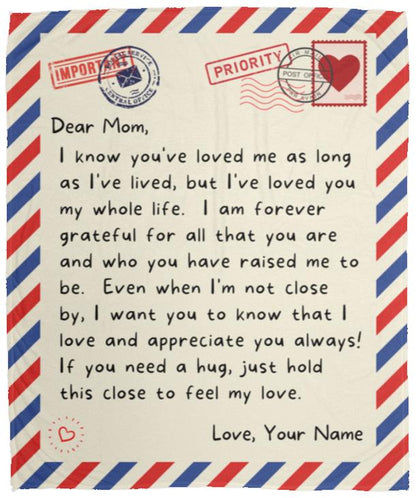 IMPORTANT
CENTRAL OFFICE
PRIORITY
AIR MAIL
POST OFFICE
Dear Mom,
I know you've loved me as long
as I've lived, but I've loved you
my whole life. I am forever
grateful for all that you are
and who you have raised me to
be. Even when I'm not close
by, I want you to know that I
love and appreciate you always!
If you need a hug, just hold
this close to feel my love.
Love, Your Name